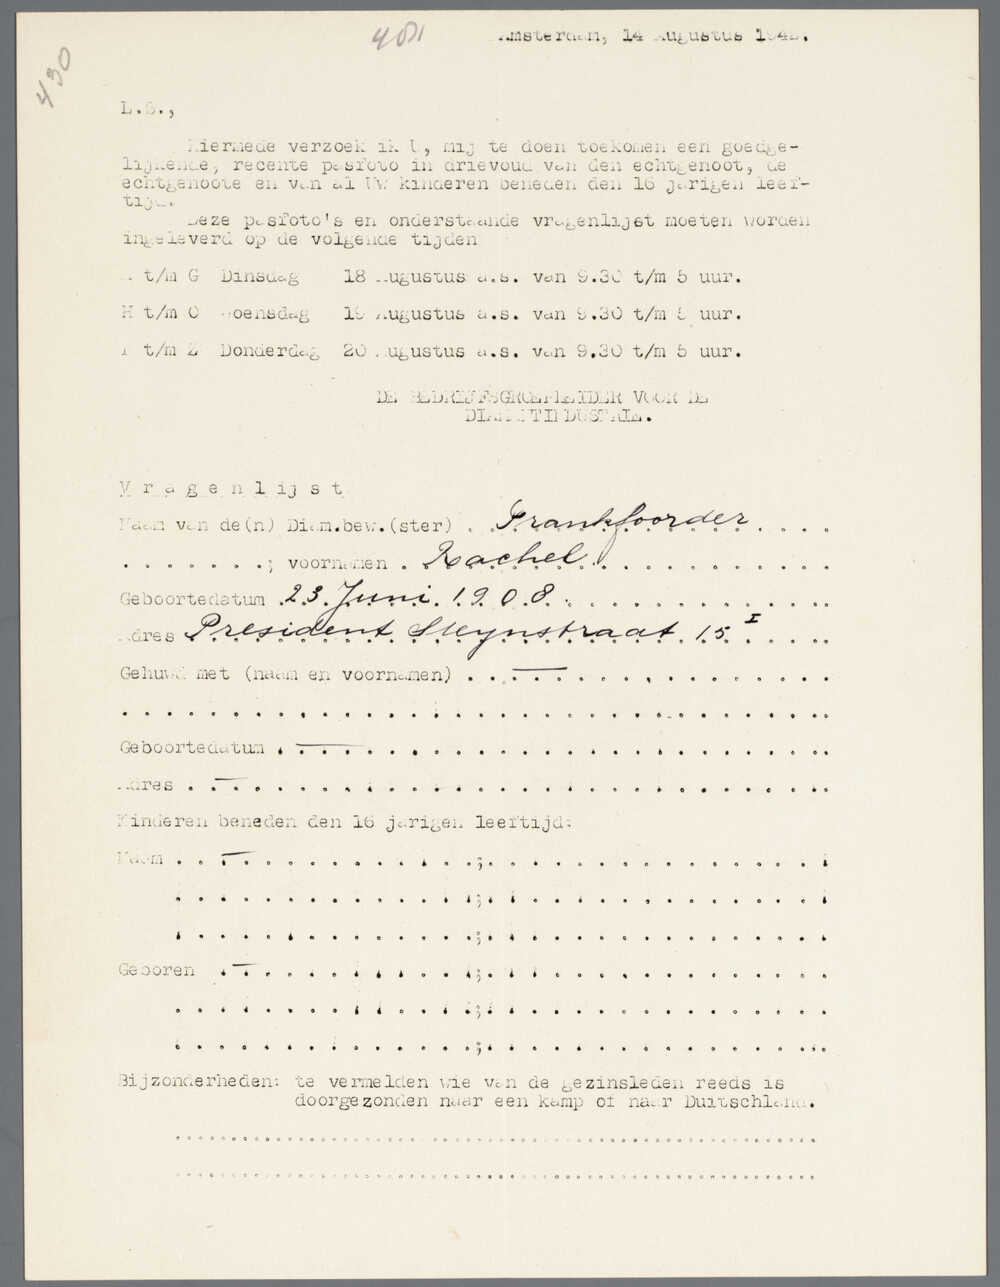 430
Amsterdam, 14 Augustus 1942.
L.S.,
Hiermede verzoek ik U, mij te doen toekomen een goedge-
lijkende, recente pasfoto in drievoud van den echtgenoot, de
echtgenoote en van al UW kinderen beneden den 16 jarigen leef-
tijd.
Deze pasfoto's en onderstaande vragenlijst moeten worden
ingeleverd op de volgende tijden
A t/m G Dinsdag 18 Augustus a.s. van 9.30 t/m 5 uur.
H t/m O Woensdag 19 Augustus a.s. van 9.30 t/m 5 uur.
P t/m Z Donderdag 20 Augustus a.s. van 9.30 t/m 5 uur.
DE BEDRIJFSGROEPLEIDER VOOR DE
DIAMANTINDUSTRIE.
V r a g e n l i j s t
Naam van de(n) Diam.bew.(ster) . Frankfoorder . . . .
. . . . . . . ; voornamen . Rachel . . . . . . . . . . .
Geboortedatum 23 Juni 1908. . . . . . . . . . . . .
Adres President Steynstraat 15 I . . . .
Gehuwd met (naam en voornamen) . . — . . . . . . . . . . . .
. . . . . . . . . . . . . . . . . . . . . . . . . . . . . . . .
Geboortedatum . — . . . . . . . . . . . . . . . . . . . . .
Adres . . — . . . . . . . . . . . . . . . . . . . . . . . . .
Kinderen beneden den 16 jarigen leeftijd:
Naam . . — . . . . . . . . . . ; . . . . . . . . . . . . . . .
. . . . . . . . . . . . . ; . . . . . . . . . . . . . . .
. . . . . . . . . . . . . ; . . . . . . . . . . . . . . .
Geboren . — . . . . . . . . . . ; . . . . . . . . . . . . . . .
. . . . . . . . . . . . . ; . . . . . . . . . . . . . . .
. . . . . . . . . . . . . ; . . . . . . . . . . . . . . .
Bijzonderheden: te vermelden wie van de gezinsleden reeds is
doorgezonden naar een kamp of naar Duitschland.
. . . . . . . . . . . . . . . . . . . . . . . . . . . . . .
. . . . . . . . . . . . . . . . . . . . . . . . . . . . . .